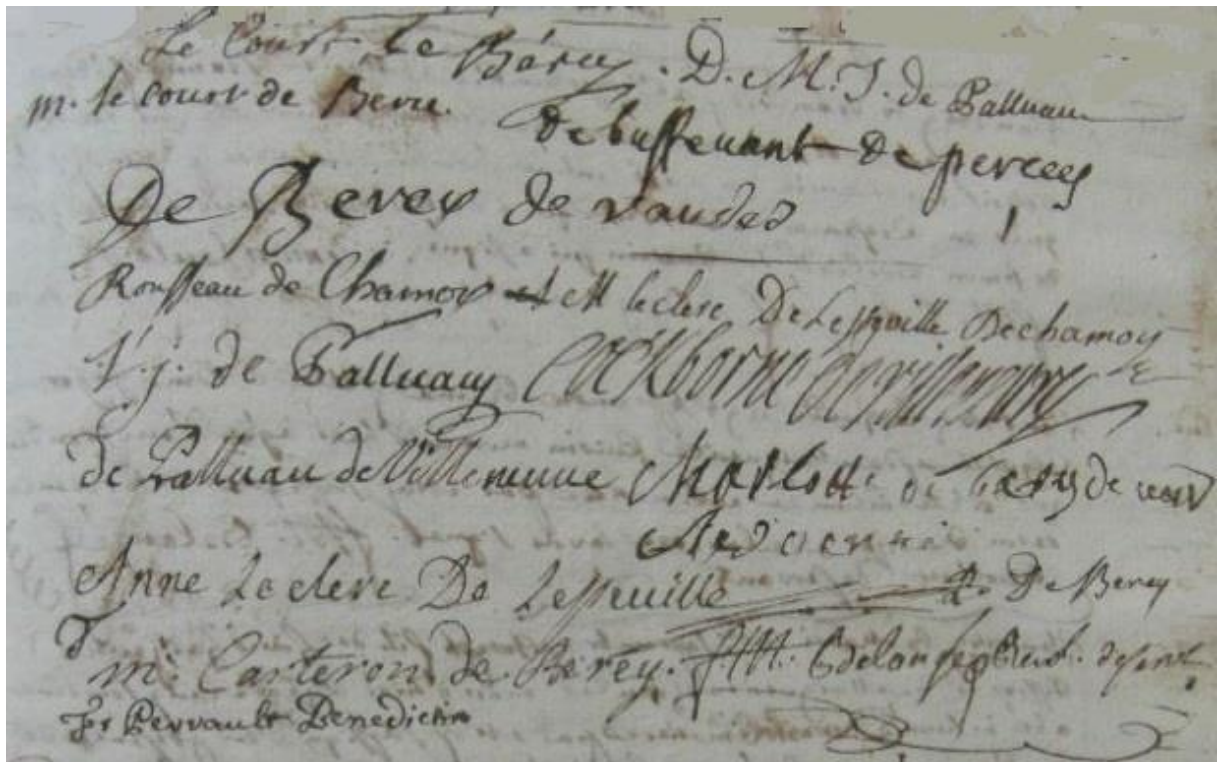 Le Court de Béru. D. M. J. de Palluau
m. le court de Beru.
de buffenant de percey
De Berey de vaudes
Rousseau de Chamoy M leclerc De Lesseville Dechamoy
j. de Palluau Cockborne de villeneuve
de Palluau de Villeneuve Charlotte de berey de
Anne Leclerc De Lesseville De Berey
m. Carteron de Berey.
fr Perrault Benedictin